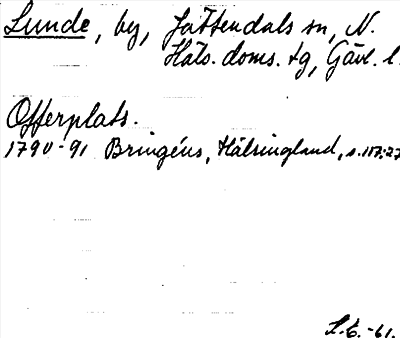 Lunde, by, Jättendals sn, N.
Häls. doms. tg, Gävl. l.
Offerplats.
1790-91 Bringéus, Hälsingland, s. 117:27
S.E. -61.